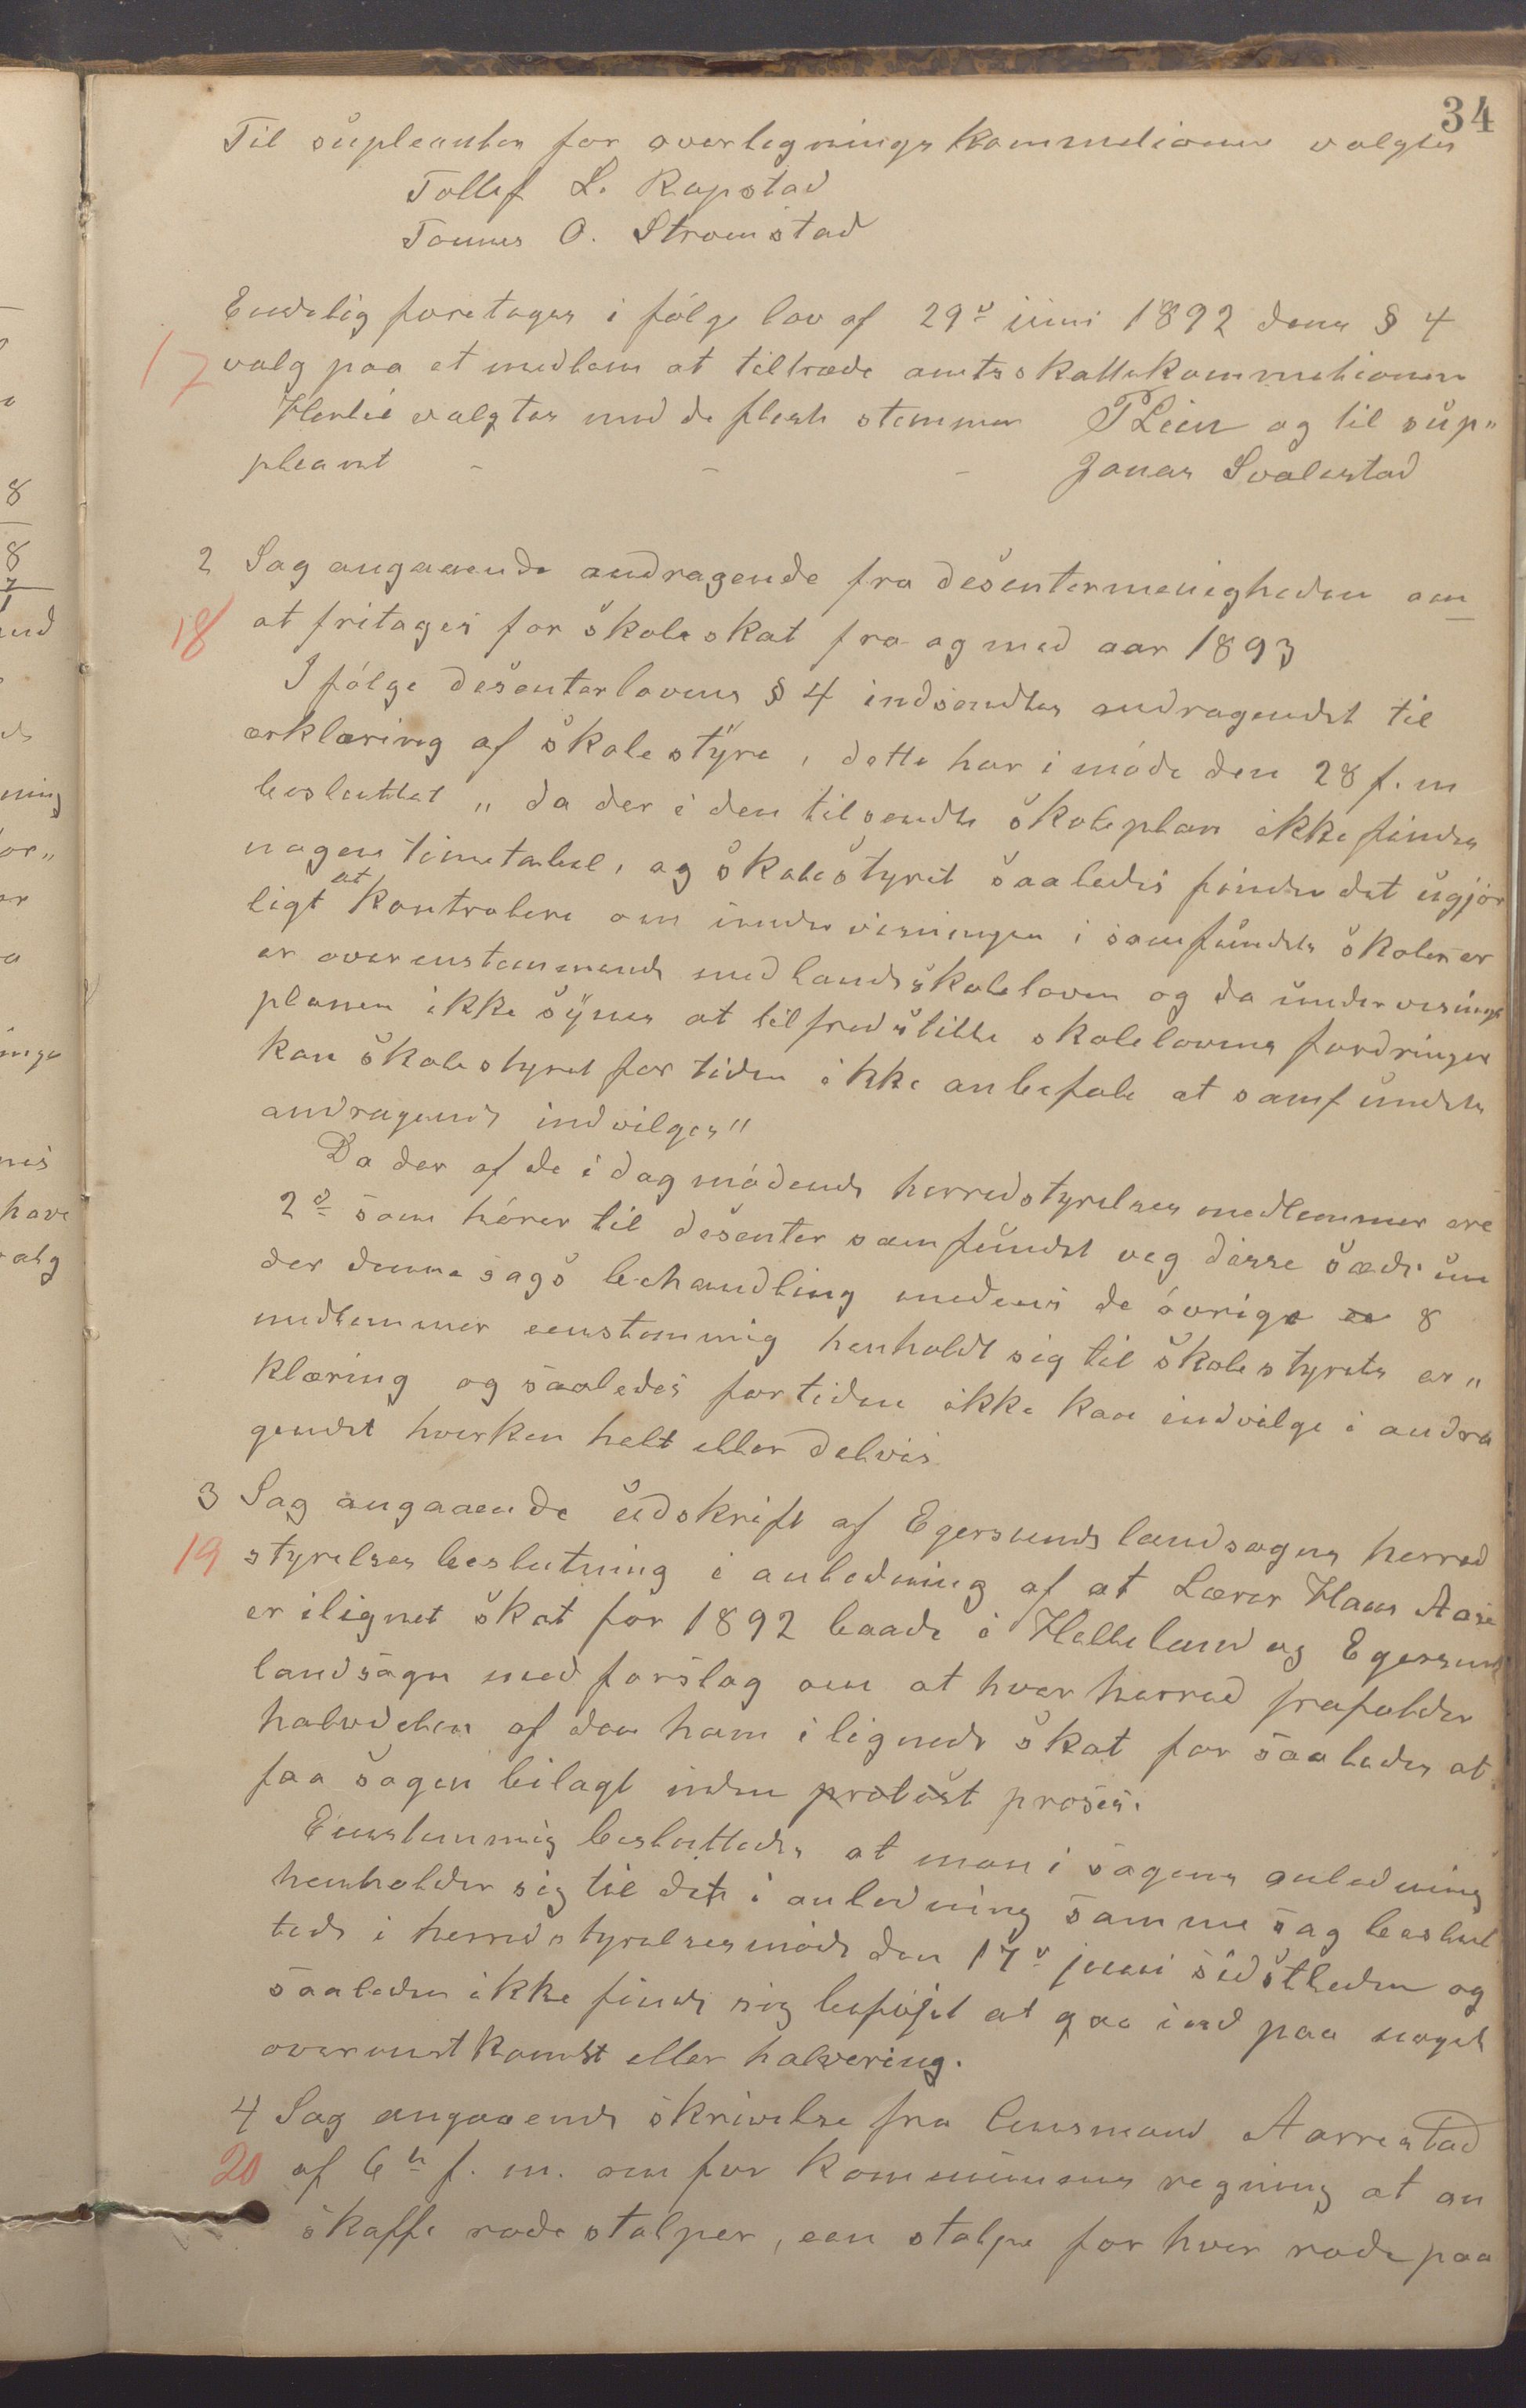 34
Til supleanter for overlignings kommitionen valgtes
Tollef L. Rapstad
Tonnes O. Stromstad
Endelig foretoges i følge lov af 29de juni 1892 dens § 4
17 valg paa et medlem at tiltræde amtsskattekommitionen
Hertil valgtes med de fleste stemmer P Lein og til sup„
pleant - - - Jonas Svalestad
2 Sag angaaende andragende fra desentermenigheden om
18 at fritages for skoleskat fra og med aar 1893
I følge desenterlovens § 4 indsendtes andragendet til
erklæring af skolestyre, dette har i møde den 28 f. m
besluttet „ da der i den tilsendte skoleplan ikke findes
nogen timetabel, og skolestyret saaledes finder det ugjør
ligt at kontrolere om undervisningen i samfundets skoler er
er overenstemmende med landsskoleloven og da undervisnings
planen ikke synes at tilfredstille skolelovens fordringer
kan skolestyret for tiden ikke anbefale at samfundets
andragende indvilges"
Da der af de i dag mødende herredstyrelses medlemmer ere
2de som hører til desenter samfundet veg disse sæde un
der denne sags behandling medens de øvrige 8
medlemmer eenstemmig henholdt sig til skolestyrets er„
klæring og saaledes for tiden ikke kan indvilge i andra
gendet hverken helt eller delvis
3 Sag angaaende udskrift af Egersunds landsogns herred
19 styrelses beslutning i anledning af at Lærer Hans Aase
er ilignet skat for 1892 baade i Helleland og Egersund
landsogn med forslag om at hver herred frafalder
halvdelen af den ham ilignede skat for saaledes at
faa sagen bilagt uden protest proses.
Eenstemmig besluttedes at man i sagens anledning
henholder sig til det i anledning samme sag beslut
tede i herredstyrelsesmøde den 17de juni sidstleden og
saaledes ikke finde sig beføjet at gaa ind paa noget
overenstkomst eller halvering.
4 Sag angaaende skrivelse fra lensmand Aarrestad
20 af 6te f. m. om for kommunens regning at an
skaffe rodestolper, een stolpe for hver rode paa